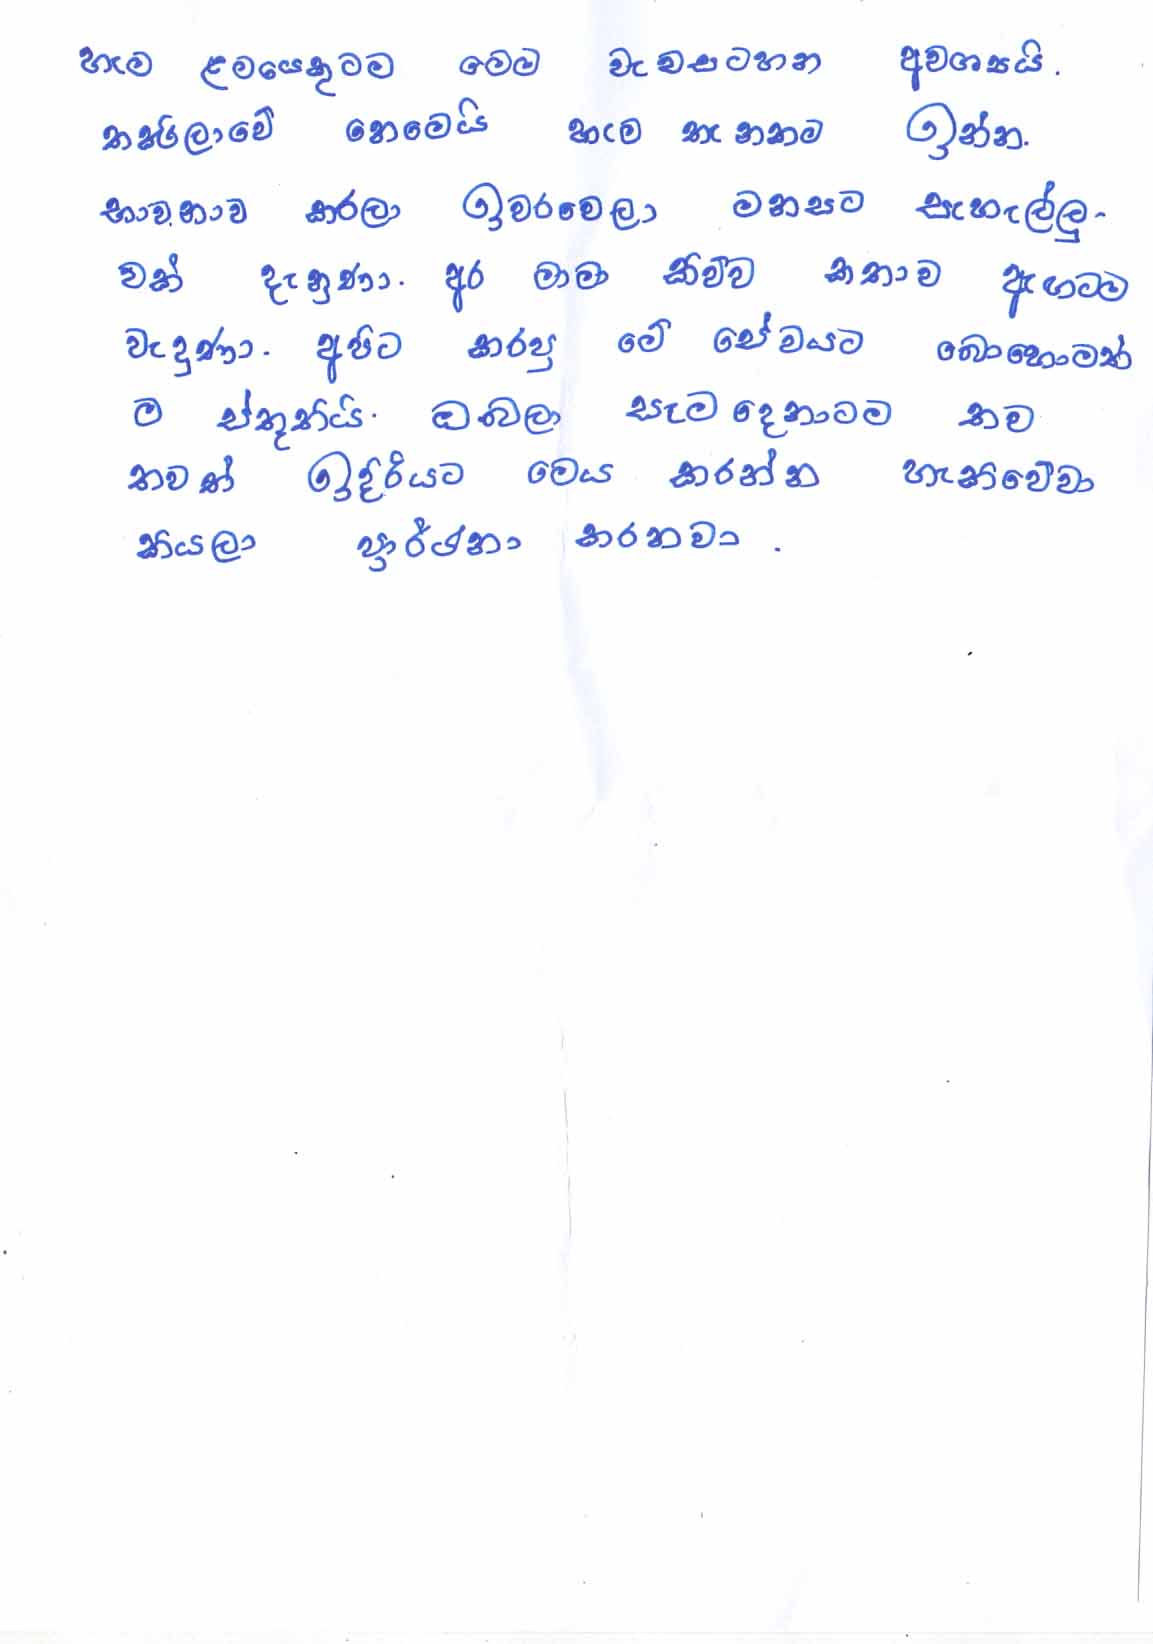 හැම ළමයෙකුටම මෙම වැඩසටහන අවශ්‍යයි.
තක්ෂිලාවේ නෙමෙයි හැම තැනකම ඉන්න.
භාවනාව කරලා ඉවරවෙලා මනසට සැහැල්ලු-
වක් දැනුණා. අර මාමා කිව්ව කතාව ඇඟටම
වැදුණා. අපිට කරපු මේ සේවයට බොහොමත්
ම ස්තූතියි. ඔබලා සැම දෙනාටම තව
තවත් ඉදිරියට මෙය කරන්න හැකිවේවා
කියලා ප්‍රාර්ථනා කරනවා.